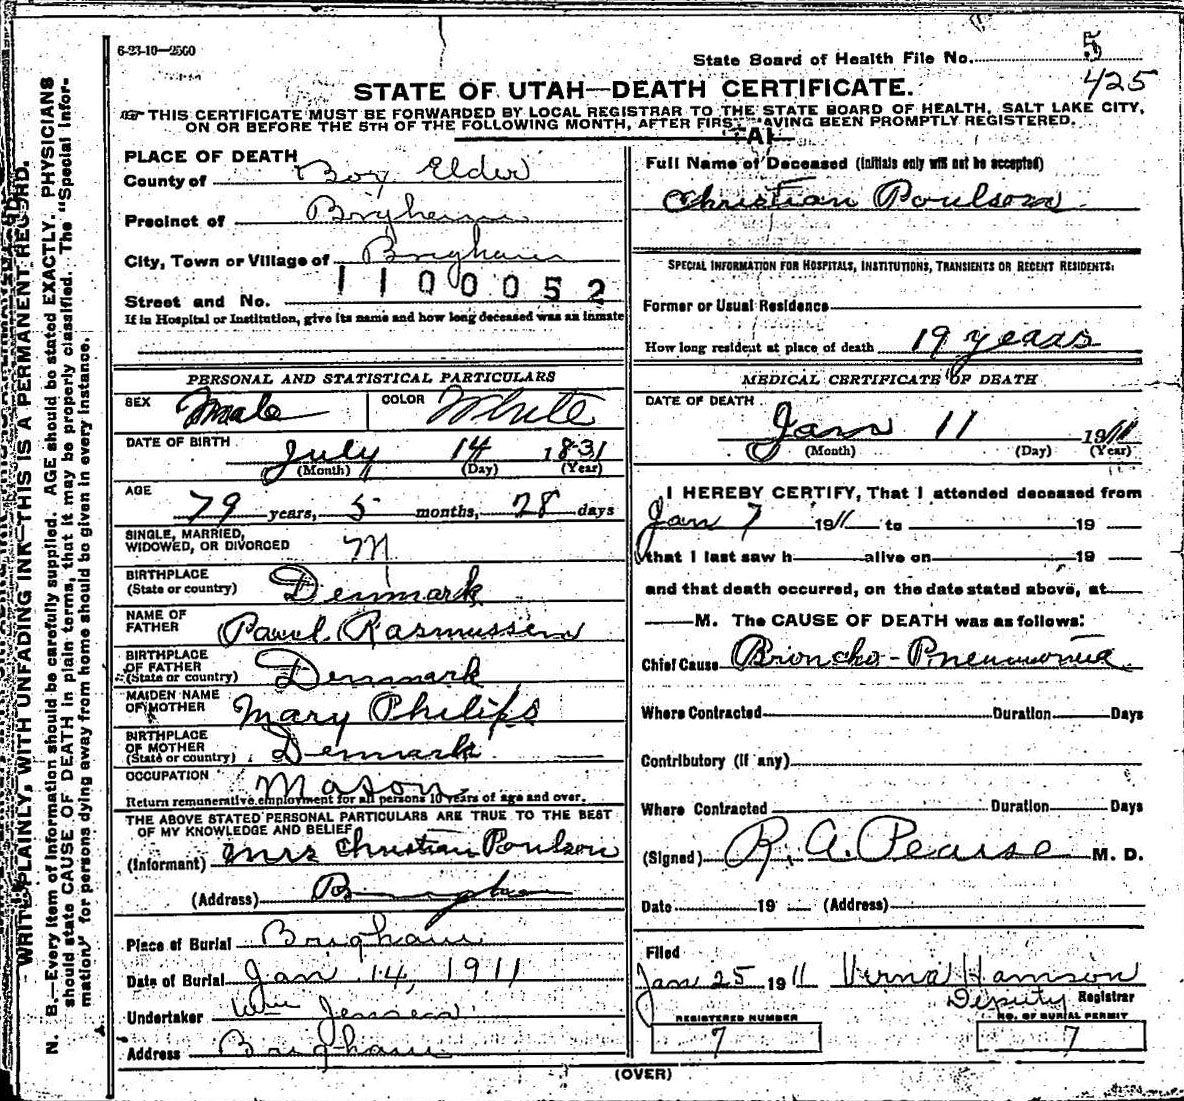 6-23-10—2500
State Board of Health File No. 5
425
STATE OF UTAH—DEATH CERTIFICATE.
THIS CERTIFICATE MUST BE FORWARDED BY LOCAL REGISTRAR TO THE STATE BOARD OF HEALTH, SALT LAKE CITY,
ON OR BEFORE THE 5TH OF THE FOLLOWING MONTH, AFTER FIRST AVING BEEN PROMPTLY REGISTERED.
PLACE OF DEATH
County of Box Elder
Precinct of Brigham
City, Town or Village of Brigham
1 1 0 0 0 5 2
Street and No.
If in Hospital or Institution, give its name and how long deceased was an inmate
PERSONAL AND STATISTICAL PARTICULARS
SEX Male COLOR White
DATE OF BIRTH July 14 1831
(Month) (Day) (Year)
AGE 79 years, 5 months, 28 days
SINGLE, MARRIED,
WIDOWED, OR DIVORCED M
BIRTHPLACE
(State or country) Denmark
NAME OF
FATHER Paul Rasmussen
BIRTHPLACE
OF FATHER
(State or country) Denmark
MAIDEN NAME
OF MOTHER Mary Philips
BIRTHPLACE
OF MOTHER
(State or country) Denmark
OCCUPATION Mason
Return remunerative employment for all persons 10 years of age and over.
THE ABOVE STATED PERSONAL PARTICULARS ARE TRUE TO THE BEST
OF MY KNOWLEDGE AND BELIEF
(Informant) Mrs Christian Poulson
(Address) Brigham
Place of Burial Brigham
Date of Burial Jan 14, 1911
Undertaker Wm Jensen
Address Brigham
Full Name of Deceased (initials only will not be accepted)
Christian Poulson
SPECIAL INFORMATION FOR HOSPITALS, INSTITUTIONS, TRANSIENTS OR RECENT RESIDENTS:
Former or Usual Residence
How long resident at place of death 19 years
MEDICAL CERTIFICATE OF DEATH
DATE OF DEATH
Jan 11 1911
(Month) (Day) (Year)
I HEREBY CERTIFY, That I attended deceased from
Jan 7 1911 to 19
that I last saw h alive on 19
and that death occurred, on the date stated above, at
M. The CAUSE OF DEATH was as follows:
Chief Cause Broncho-Pneumonia
Where Contracted Duration Days
Contributory (if any)
Where Contracted Duration Days
(Signed) R. A. Pearse M. D.
Date 19 (Address)
Filed
Jan 25 1911 Verna Hamson
Deputy Registrar
REGISTERED NUMBER NO. OF BURIAL PERMIT
7 7
(OVER)
WRITE PLAINLY, WITH UNFADING INK—THIS IS A PERMANENT RECORD.
N. B.—Every item of information should be carefully supplied. AGE should be stated EXACTLY. PHYSICIANS
should state CAUSE OF DEATH in plain terms, that it may be properly classified. The "Special Infor-
mation" for persons dying away from home should be given in every instance.